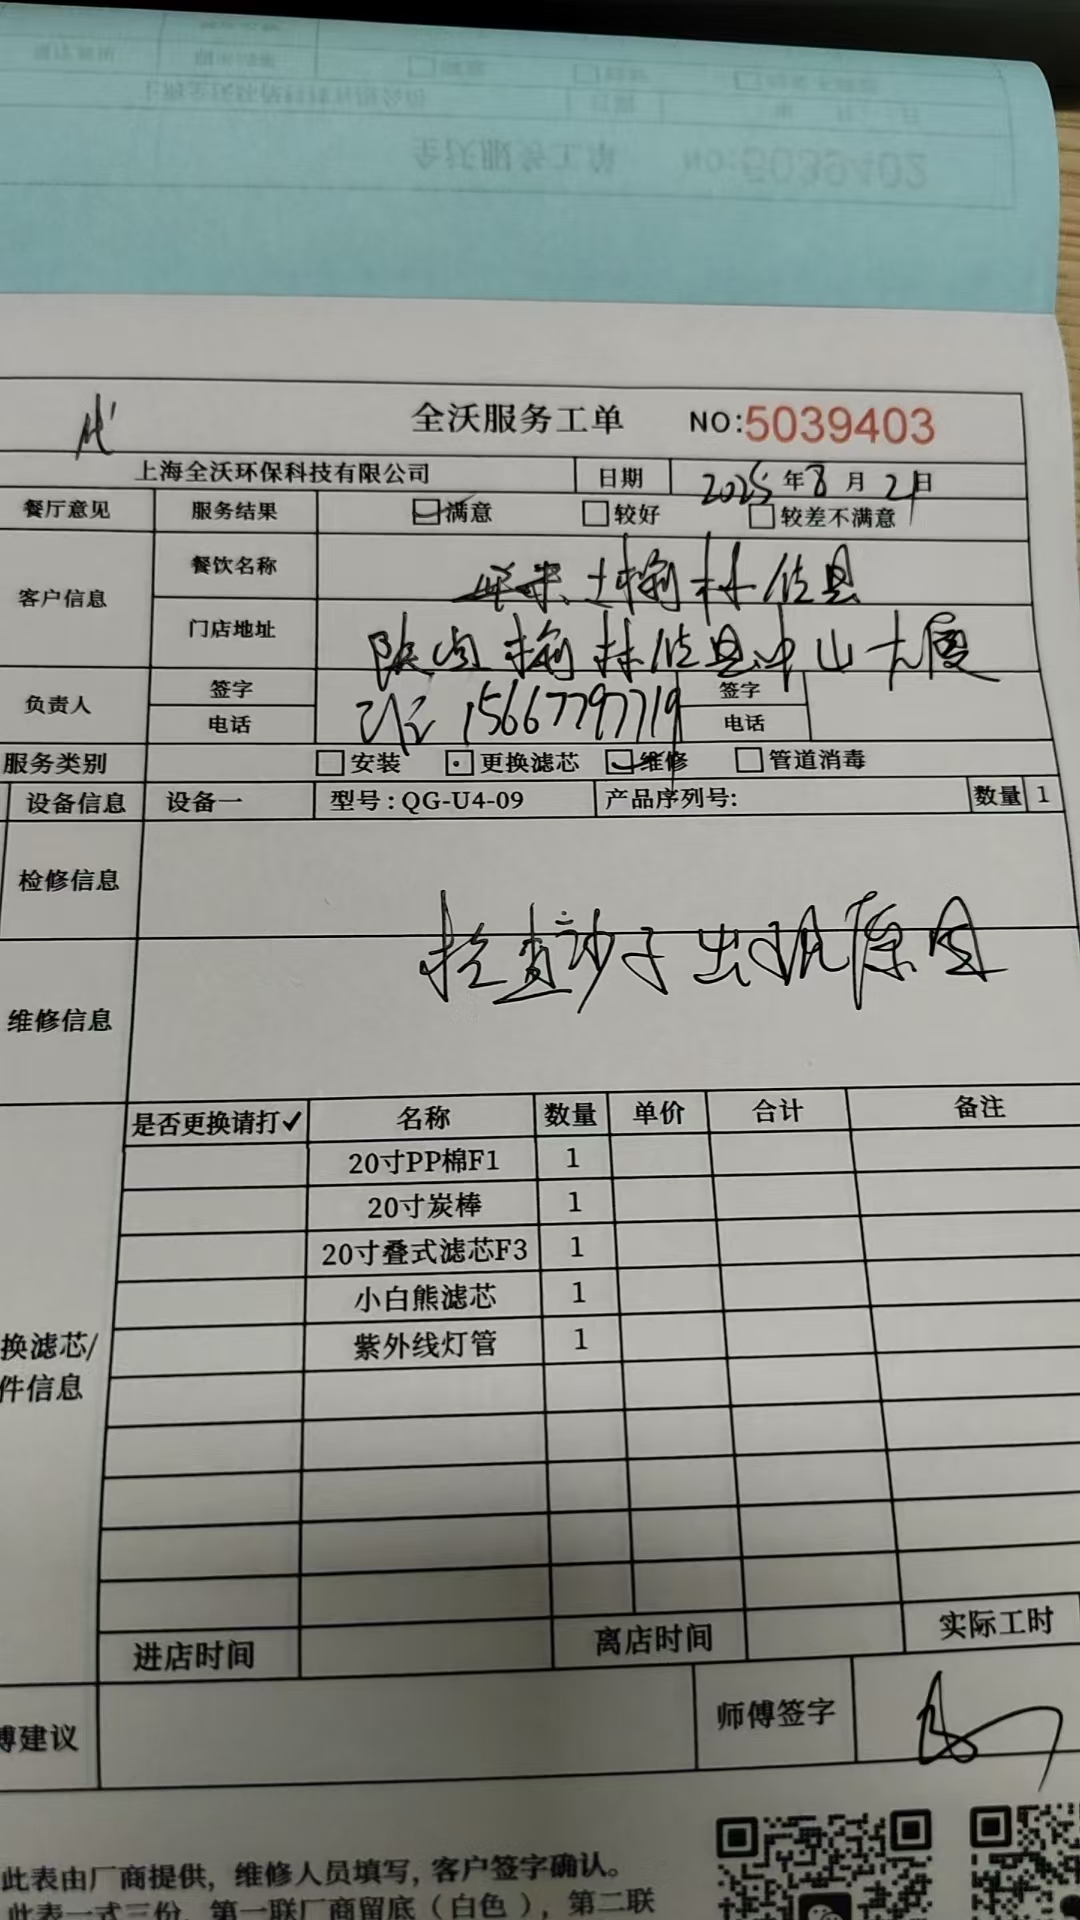 全沃服务工单 NO:5039403
上海全沃环保科技有限公司 日期 2025年8月21日
餐厅意见 服务结果 满意 较好 较差不满意
客户信息 餐饮名称 榆林佳县
门店地址 陕西榆林佳县中山大厦
负责人 签字 签字
电话 15667797719 电话
服务类别 安装 更换滤芯 维修 管道消毒
设备信息 设备一 型号:QG-U4-09 产品序列号: 数量 1
检修信息
检查沙子出现原因
维修信息
是否更换请打✓ 名称 数量 单价 合计 备注
20寸PP棉F1 1
20寸炭棒 1
20寸叠式滤芯F3 1
小白熊滤芯 1
紫外线灯管 1
换滤芯/
件信息
进店时间 离店时间 实际工时
傅建议 师傅签字
此表由厂商提供,维修人员填写,客户签字确认。
此表一式三份,第一联厂商留底(白色),第二联